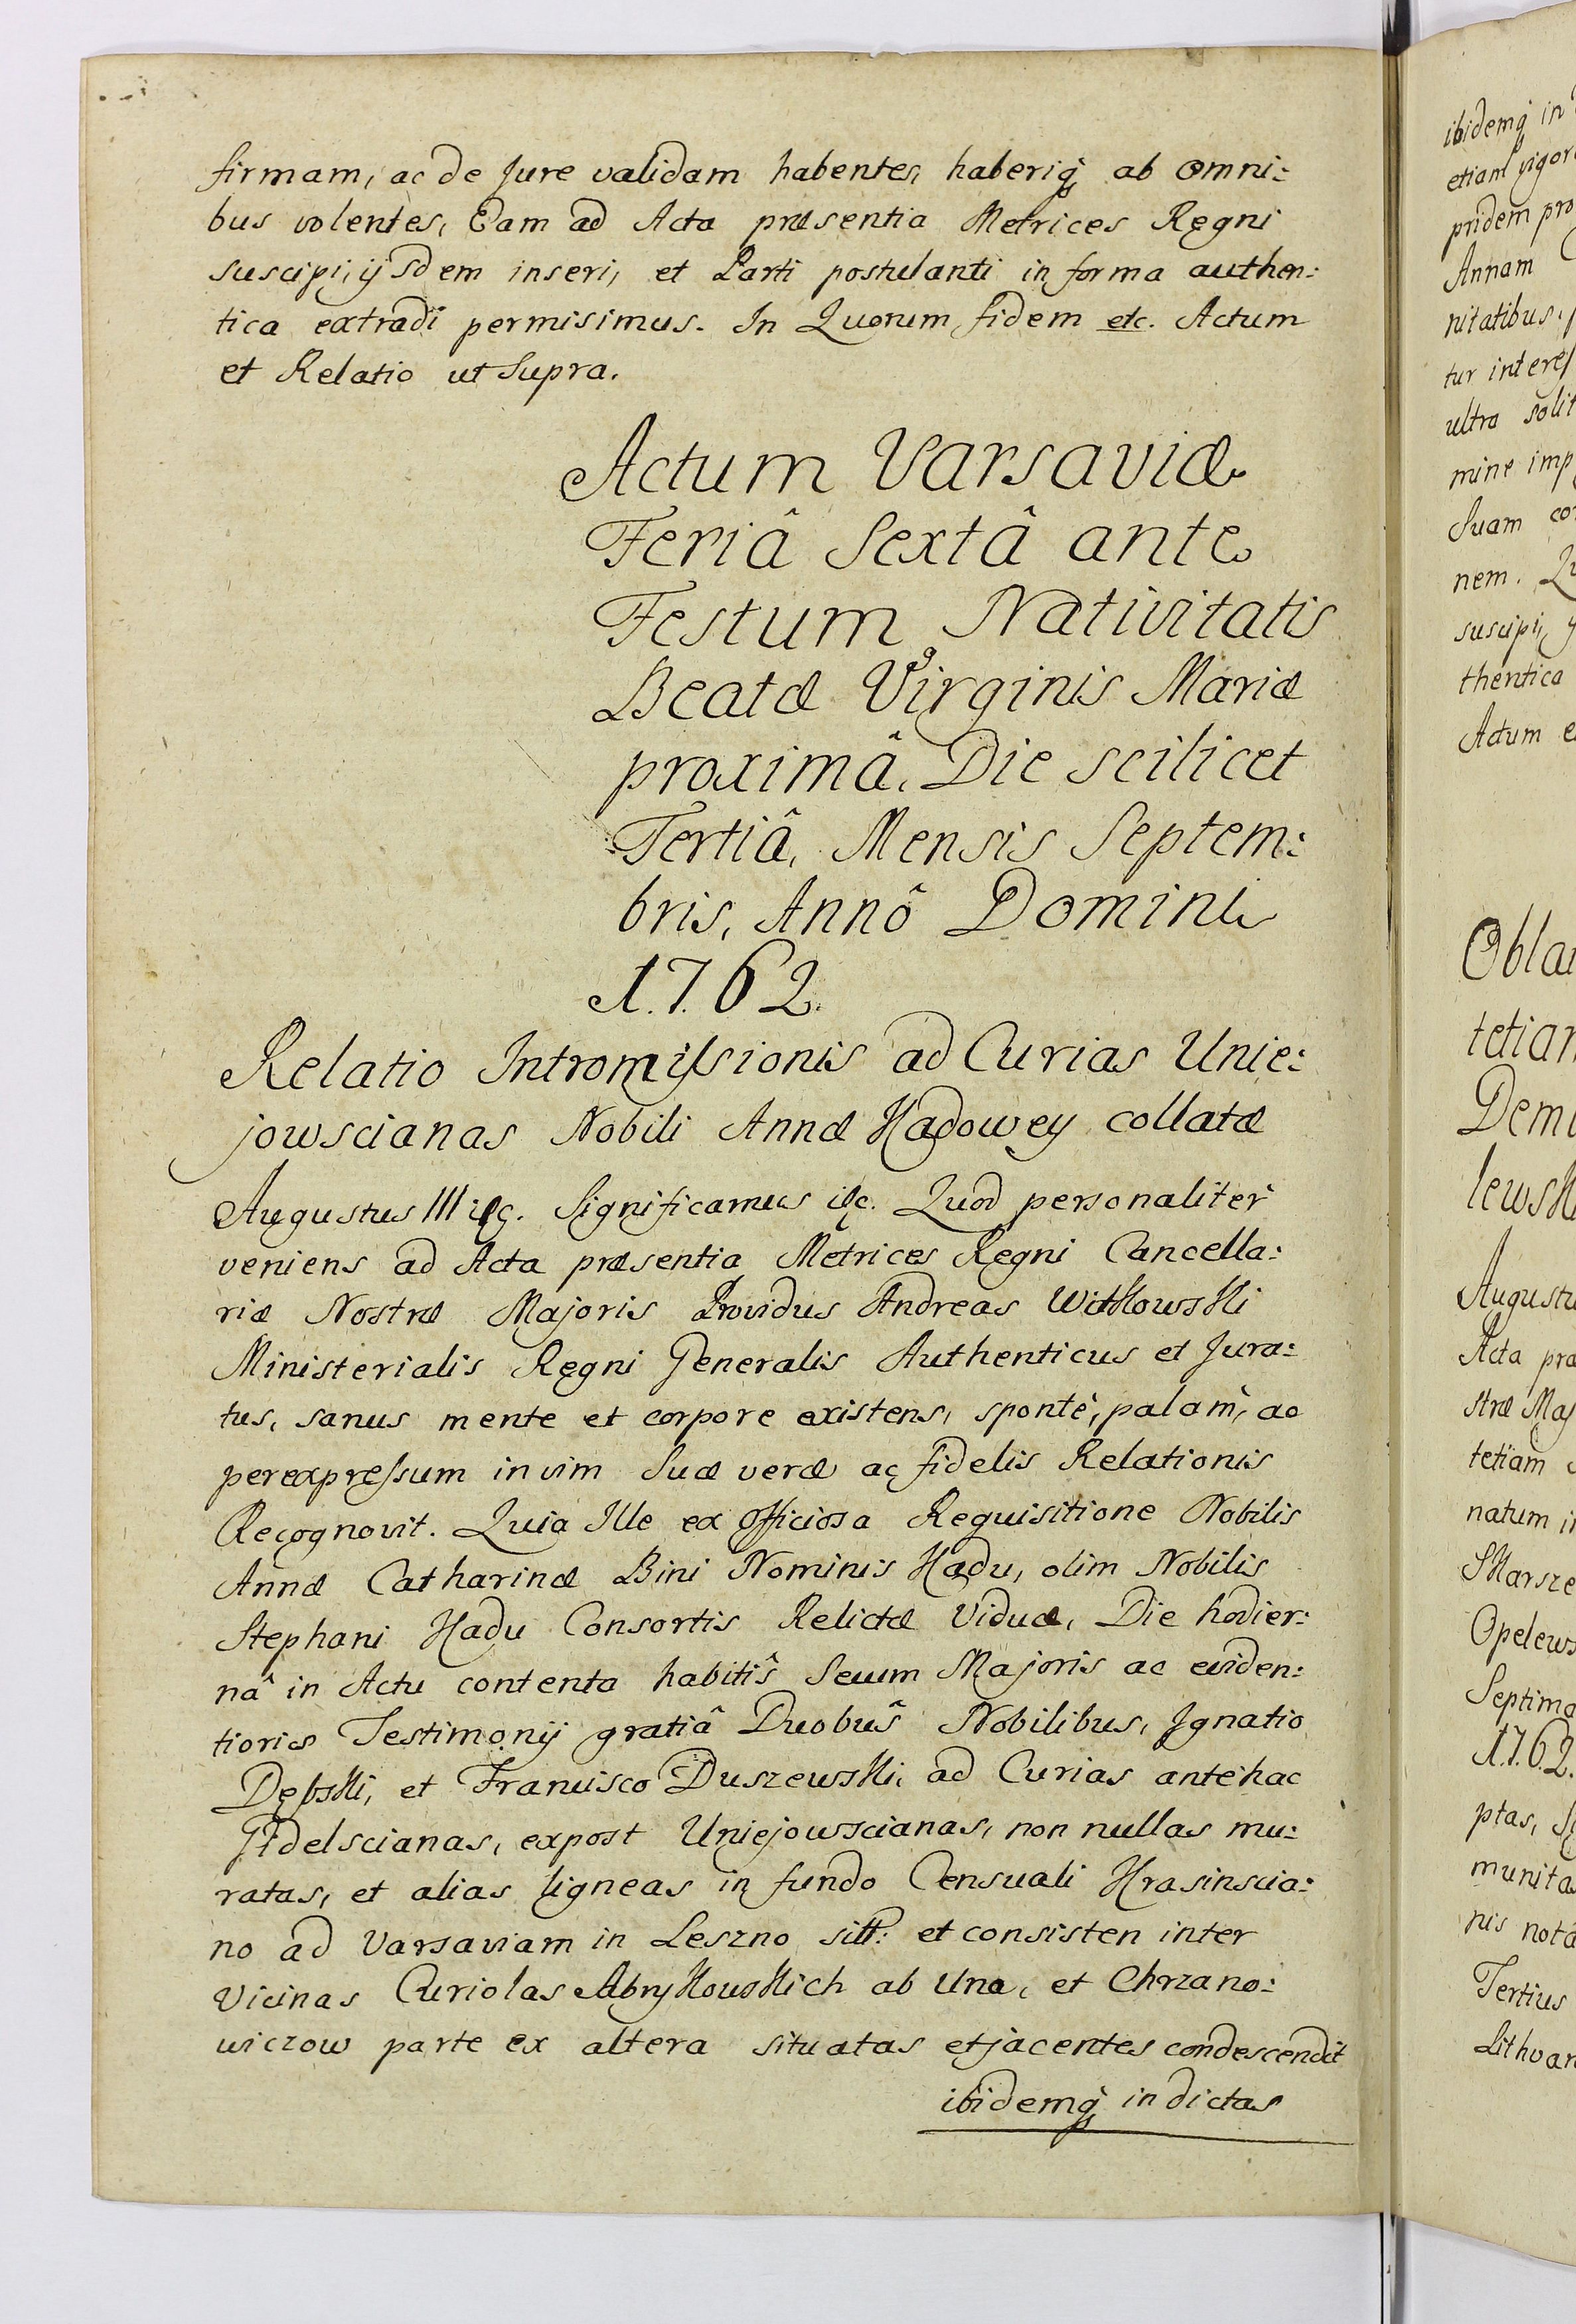 firmam, ac de Jure validam habentes, haberiq́ ab omni:
bus volentes, Eam ad Acta præsentia Metrices Regni
suscipi, ijsdem inseri, et Parti postulanti in forma authen:
tica extradi permisimus. In Quorum fidem etc. Actum
et Relatio ut Supra.
Actum Varsaviæ
Feriâ Sextâ ante
Festum Nativitatis
Beatæ Virginis Mariæ
proximâ, Die scilicet
Tertiâ, Mensis Septem:
bris, Annô Domini
1762.
Relatio Intromissionis ad Curias Unie:
jowscianas Nobili Annæ Hadowey collatæ
Augustus III etc. Significamus etc. Quod personaliter
veniens ad Acta præsentia Metrices Regni Cancella:
riæ Nostræ Majoris Providus Andreas Witkowski
Ministerialis Regni Generalis Authenticus et Jura:
tus, sanus mente et corpore existens, spontè, palàm, ac
perexpressum in vim Suæ veræ ac fidelis Relationis
Recognovit. Quia Ille ex officiosa Requisitione Nobilis
Annæ Catharinæ Bini Nominis Hadu, olim Nobilis
Stephani Hadu Consortis Relictæ Viduæ, Die hodier:
nâ in Actu contenta habitîs Secum Majoris ac eviden:
tioris Testimonij gratiâ Duobûs Nobilibus, Ignatio
Dębski, et Francisco Duszewski, ad Curias antehac
Gidelscianas, expost Uniejowscianas, non nullas mu:
ratas, et alias ligneas in fundo Censuali Krasinscia:
no ad Varsaviam in Leszno sitt: et consisten inter
Vicinas Curiolas Abrykowskich ab Una, et Chrzano:
wiczow parte ex altera situatas et jacentes condescendit
ibidemq́ in dictas
ibidemq́ in
etiam vigor
pridem pro
Annam
nitatibus,
tur interes
ultra solit
mine imp
Suam co
nem. Qu
suscipi, y
thentica
Actum e
Obla
tetian
Dem
lewski
Augustu
Acta pra
stræ Maj
tetiam
natum i
Skarsze
Opelews
Septima
1762.
ptas, S
munita
nis nota
Tertius
Lithvan